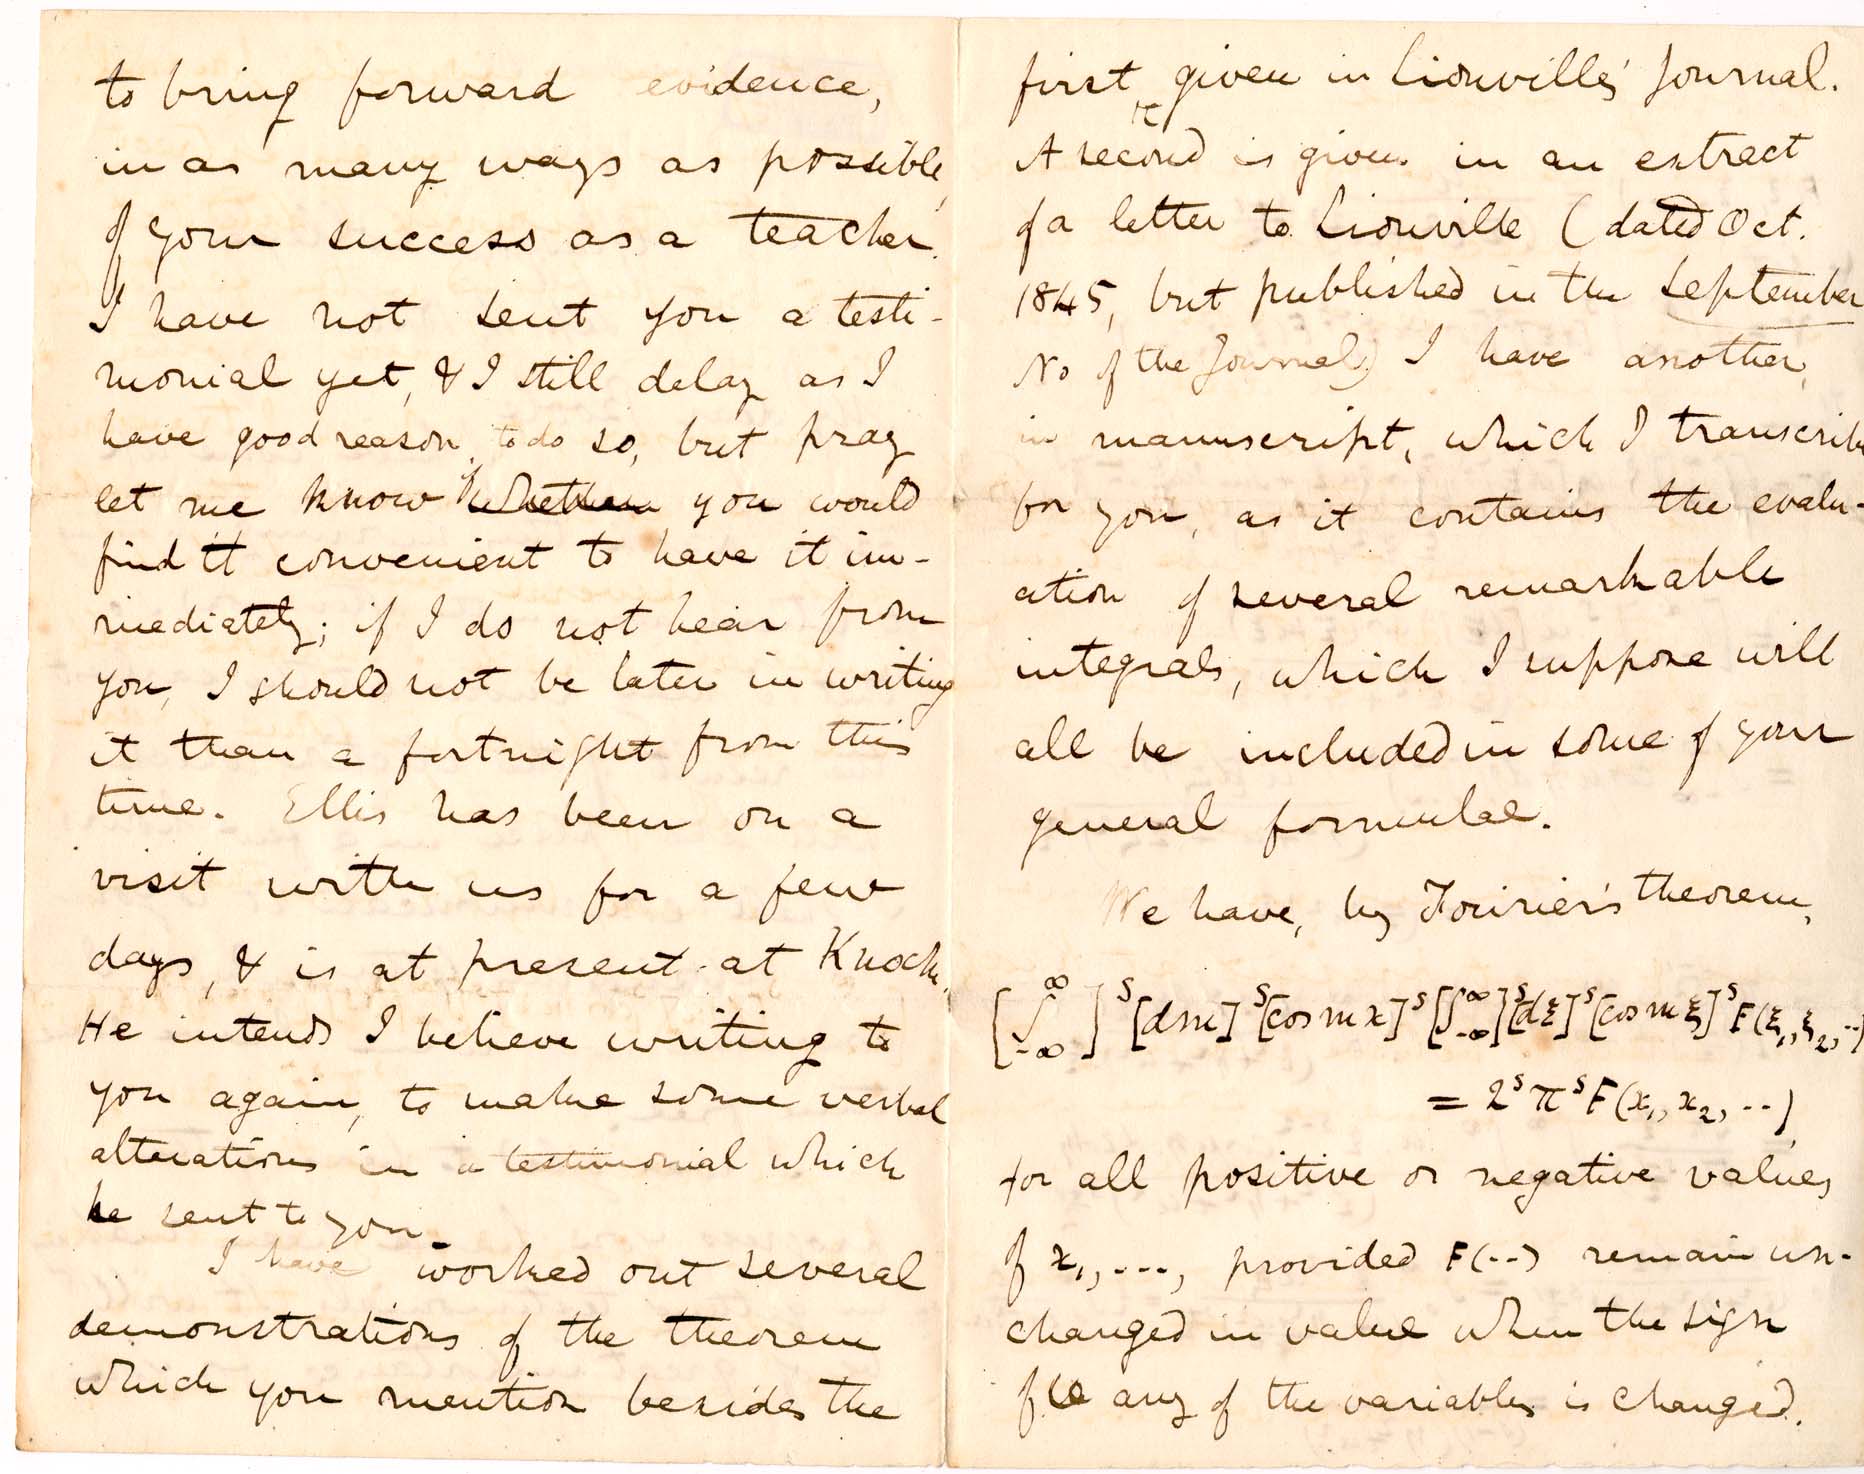 to bring forward evidence,
in as many ways as possible,
of your success as a teacher.
I have not sent you a testi-
monial yet, & I still delay as I
have good reason to do so, but pray
let me know if whether you would
find it convenient to have it im-
mediately; if I do not hear from
you, I should not be later in writing
it than a fortnight from this
time. Ellis has been on a
visit with us for a few
days, & is at present at Knock.
He intends I believe writing to
you again, to make some verbal
alterations in a testimonial which
he sent to you.
I have worked out several
demonstrations of the theorem
which you mention besides the
first given in Liouville's Journal.
A second is given in an extract
of a letter to Liouville (dated Oct.
1845, but published in the September
No of the Journal) I have another,
in manuscript, which I transcribe
for you, as it contains the evalu-
ation of several remarkable
integrals, which I suppose will
all be included in some of your
general formulae.
We have, by Fourier's theorem,
[∫_{-∞}^{∞}]^s [dm]^s [cos mx]^s [∫_{-∞}^{∞}]^s [dξ]^s [cos mξ]^s F(ξ₁, ξ₂, ..)
= 2^s π^s F(x₁, x₂, ..),
for all positive or negative values
of x₁, ..., provided F(..) remain un-
changed in value when the sign
of any of the variables is changed.